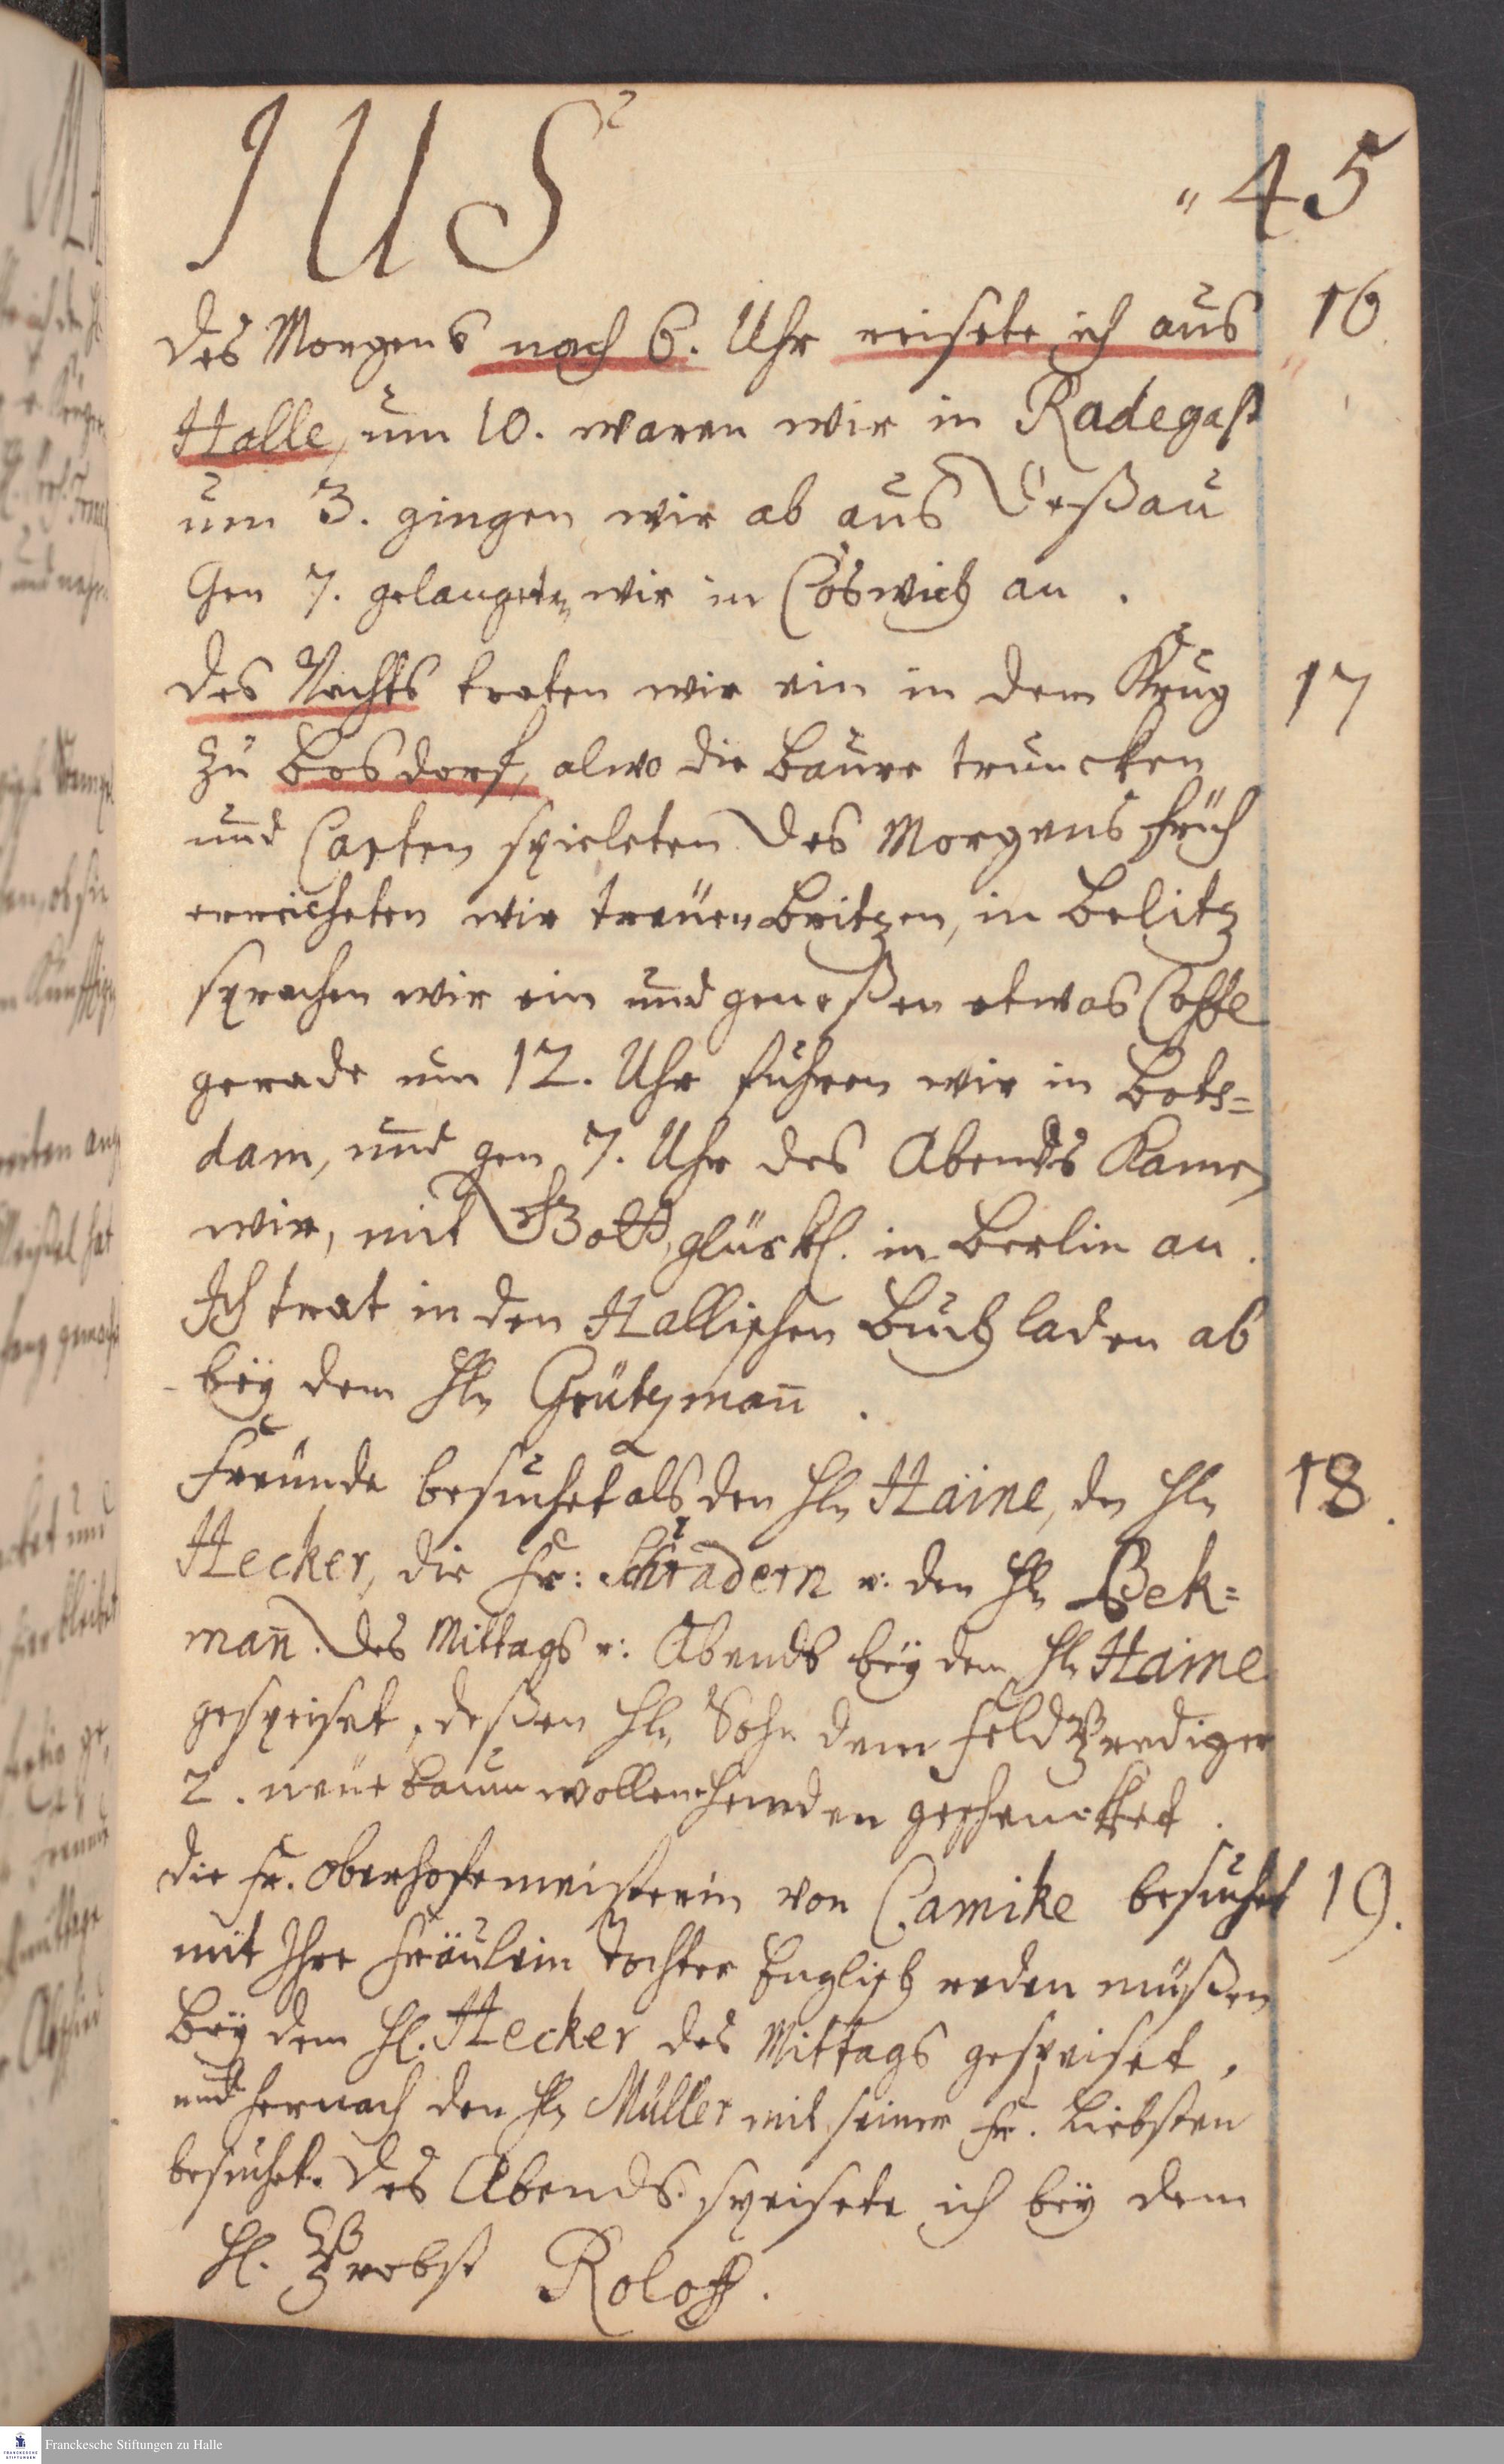 IUS
" 45
des Morgens nach 6. Uhr reisete ich aus 16.
Halle, um 10. waren wir in Radegast
um 3. gingen wir ab aus Deßau
Gen 7. gelangeten wir in Coswich an.
des Nachts traten wir ein in dem Krug 17
zu Bosdorf, alwo die Baure truncken
und Carten spieleten. Des Morgens früh
erreicheten wir treüenbritzen, in Belitz
sprachen wir ein und genoßen etwas Coffe
gerade um 12. Uhr fuhren wir in Bots=
dam, und gen 7. Uhr des Abends kamen
wir, mit Gott, glückl. in Berlin an.
Ich trat in den Hallischen Buchladen ab
bey dem Hln Grützmañ.
Freunde besuchet als den Hln Haine, den Hln 18.
Hecker, die Fr: Schradern u. den Hln Bek=
mañ. Des Mittags u. Abends bey dem Hln Haine
gespeiset, deßen Hln Sohn dem Feld Prediger
2. neue baumwollene Hemden geschencket.
die Fr. Oberhofemeisterin von Camike besuchet 19.
mit Ihre Fräulein Tochter Englisch reden müßen
Bey dem Hl. Hecker des Mittags gespeiset,
und hernach den Hln Müller mit seiner Fr. Liebsten
besuchet. Des Abends speisete ich bey dem
Hl. Probst Roloff.
Franckesche Stiftungen zu Halle